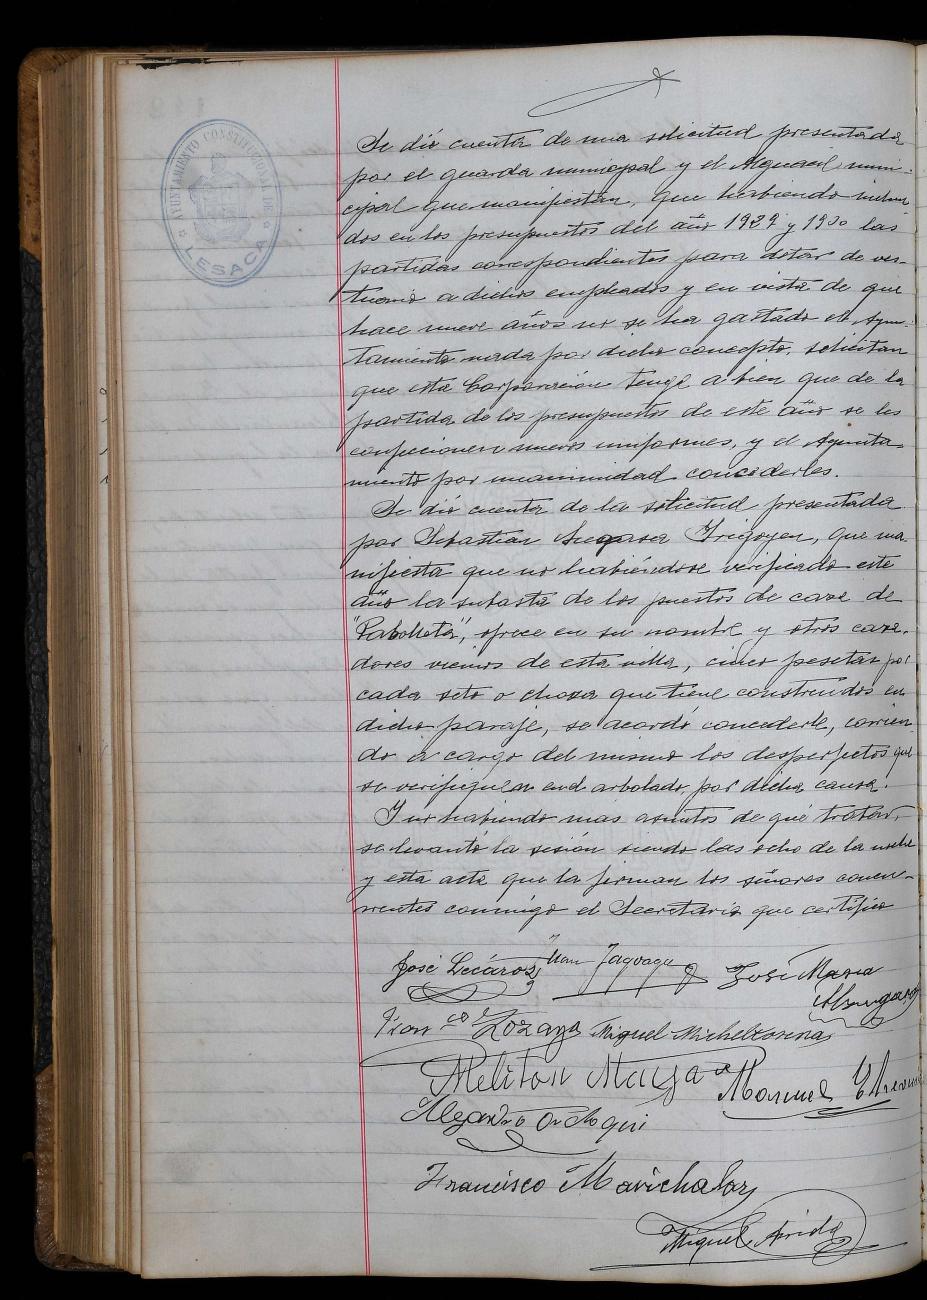 AYUNTAMIENTO CONSTITUCIONAL DE
LESACA
Se dió cuenta de una solicitud presentada
por el guarda municipal y el Alguacil muni-
cipal que manifiestan, que habiendo
dos en los presupuestos del año 1929 y 1930 las
partidas correspondientes para dotar de ves-
tuario a dichos empleados y en vista de que
hace nueve años no se ha gastado el Ayun-
tamiento nada por dicho concepto, solicitan
que esta Corporación tenga a bien que de la
partida de los presupuestos de este año se les
confeccionen nuevos uniformes, y el Ayunta-
miento por unanimidad concederles.
Se dió cuenta de la solicitud presentada
por Sebastian Irigoyen, que ma-
nifiesta que no habiéndose verificado este
año la subasta de los puestos de caza de
ofrece en su nombre y otros caza-
dores vecinos de esta villa, cinco pesetas por
cada seto o choza que tiene construidos en
dicho paraje, se acordó concederle, corrien-
do a cargo del mismo los desperfectos que
se verifiquen en el arbolado, por dicha causa.
Y no habiendo mas asuntos de que tratar,
se levantó la sesión siendo las ocho de la noche
y esta acta que la firman los señores concu-
rrentes conmigo el Secretario que certifico
José Lecároz Juan José Maria
Franco Lozaya Miguel Micheltorena
Meliton Maya Manuel
Alejandro Ordoqui
Francisco Marichalar
Miguel